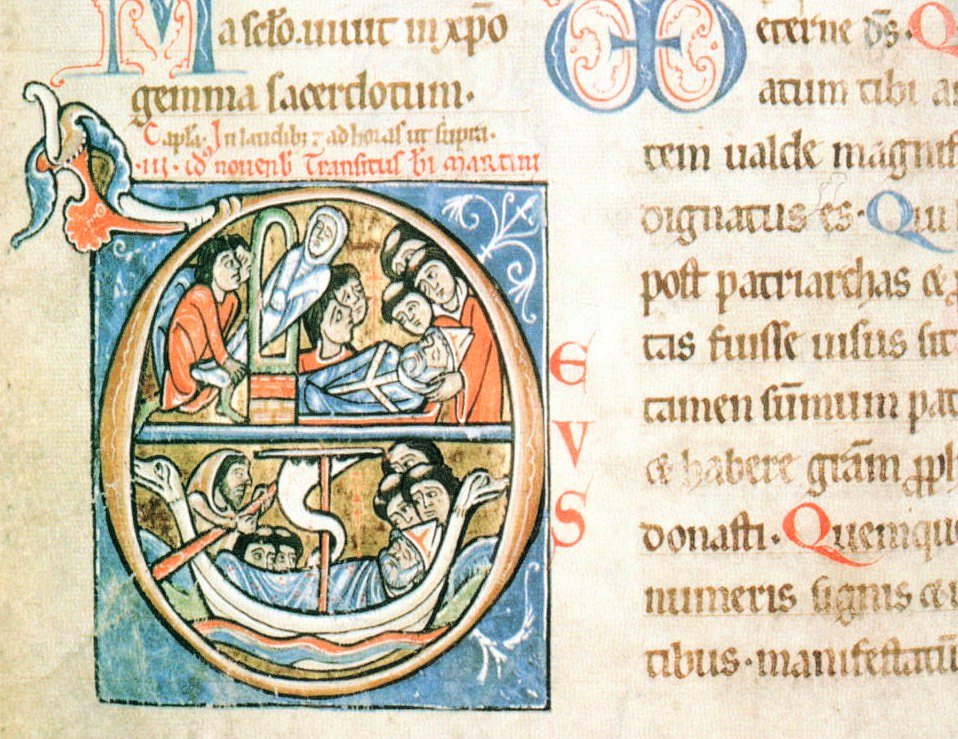 Ma scło. uiuit in xp̄o
gemma sacerdotum.
Capła. In laudib; ⁊ ad horas ut supra.
.III. id nouenb̄ Transitus bī martini
DEVS
eterne d̄s. Q
atum tibi
tem ualde magnif
dignatus es. Qui
post patriarchas &
tas fuisse uisus sit
tamen sūmum pat
& habere grām
donasti. Quemqu
numeris signis &
tibus. manifestatū